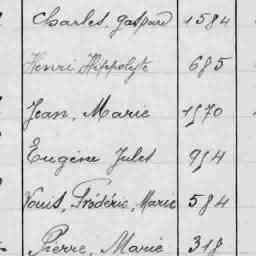 Charles, Gaspard 1584
Henri Hippolyte 685
Jean, Marie 1570
Eugène Jules 954
Louis, Frédéric, Marie 584
Pierre, Marie 318